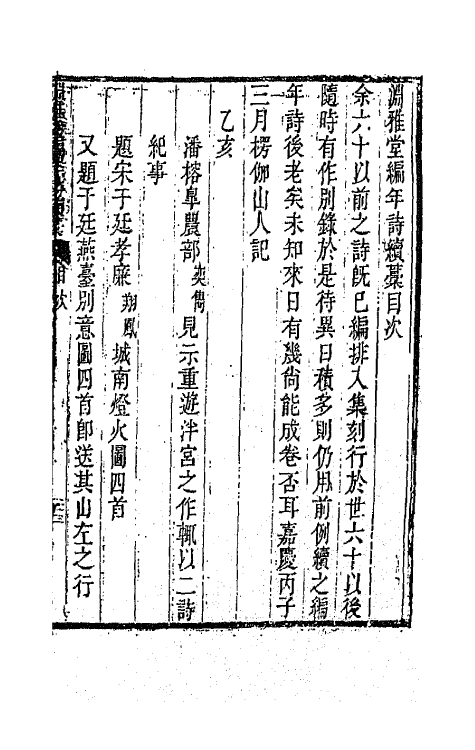 淵雅堂編年詩續藁目次
余六十以前之詩旣已編排入集刻行於世六十以後
隨時有作別錄於是待異日積多則仍用前例續之編
年詩後老矣未知來日有幾尙能成卷否耳嘉慶丙子
三月楞伽山人記
乙亥
潘榕皐農部奕雋見示重遊泮宮之作輒以二詩
紀事
題宋于廷孝廉翔鳳城南燈火圖四首
又題于廷燕臺別意圖四首卽送其山左之行
目次